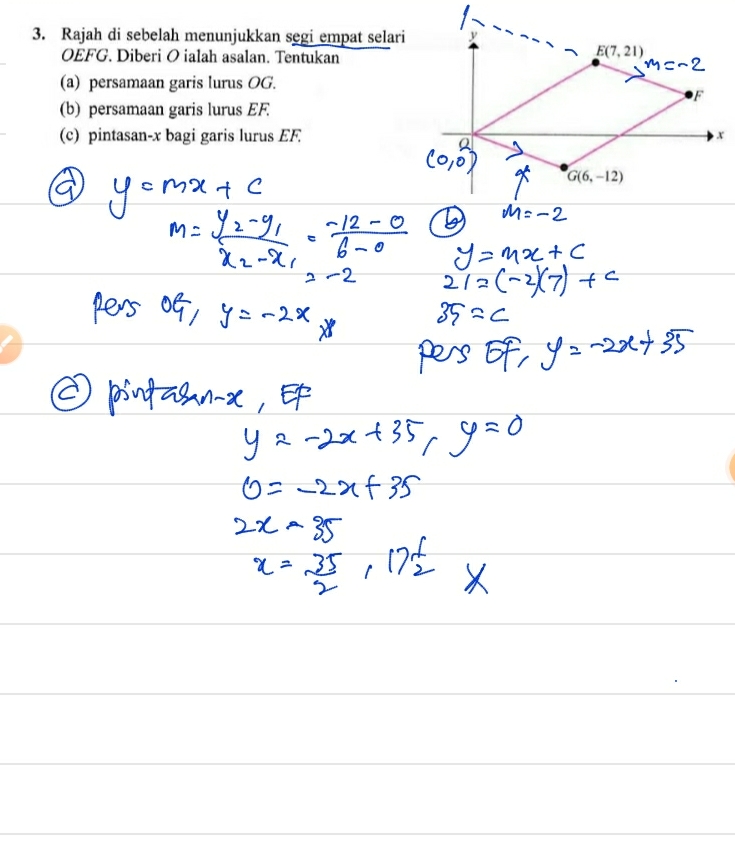 3. Rajah di sebelah menunjukkan segi empat selari
OEFG. Diberi O ialah asalan. Tentukan
(a) persamaan garis lurus OG.
(b) persamaan garis lurus EF.
(c) pintasan-x bagi garis lurus EF.
y
E(7, 21)
m=-2
F
x
O
(0,0)
G(6, -12)
m=-2
(a) y = mx + c
m = y₂-y₁ / x₂-x₁ = -12 - 0 / 6 - 0
= -2
Pers OG, y = -2x
(b)
y = mx + c
21 = (-2)(7) + c
35 = c
Pers EF, y = -2x + 35
(c) pintasan-x, EF
y = -2x + 35, y = 0
0 = -2x + 35
2x = 35
x = 35/2, 17 1/2